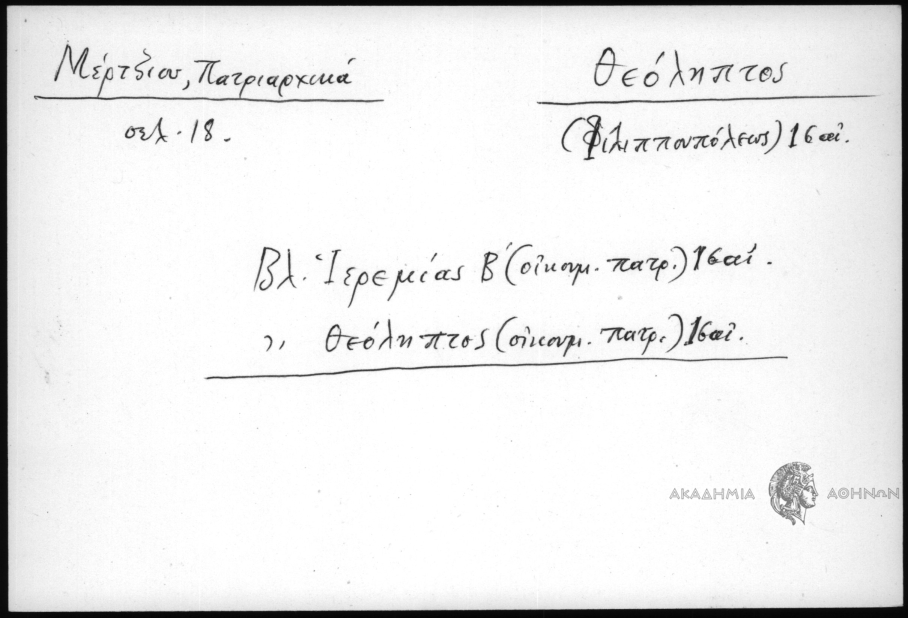 Μέρτζιου, Πατριαρχικά
σελ. 18.
Θεόληπτος
(Φιλιππουπόλεως) 16 αἰ.
Βλ. Ἱερεμίας Β΄ (οἰκουμ. πατρ.) 16 αἰ.
,, Θεόληπτος (οἰκουμ. πατρ.) 16 αἰ.
ΑΚΑΔΗΜΙΑ ΑΘΗΝΩΝ